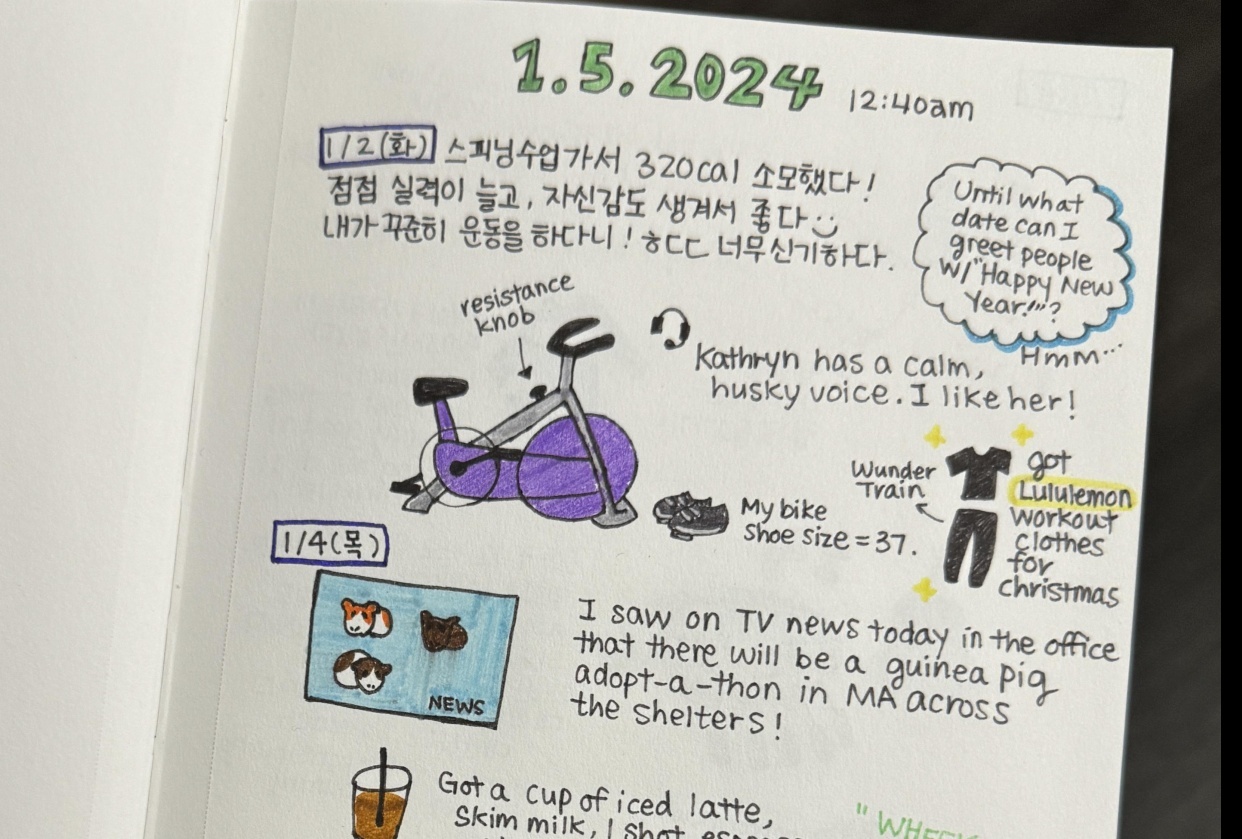 1.5.2024 12:40am
1/2(화) 스피닝수업가서 320cal 소모했다!
점점 실력이 늘고, 자신감도 생겨서 좋다
내가 꾸준히 운동을 하다니! ㅎㄷㄷ 너무신기하다.
Until what
date can I
greet people
w/"Happy New
Year!"?
Hmm...
resistance
knob
Kathryn has a calm,
husky voice. I like her!
Wunder
Train
got
Lululemon
workout
clothes
for
christmas
My bike
shoe size = 37.
1/4(목)
NEWS
I saw on TV news today in the office
that there will be a guinea pig
adopt-a-thon in MA across
the shelters!
Got a cup of iced latte,
skim milk, 1 shot